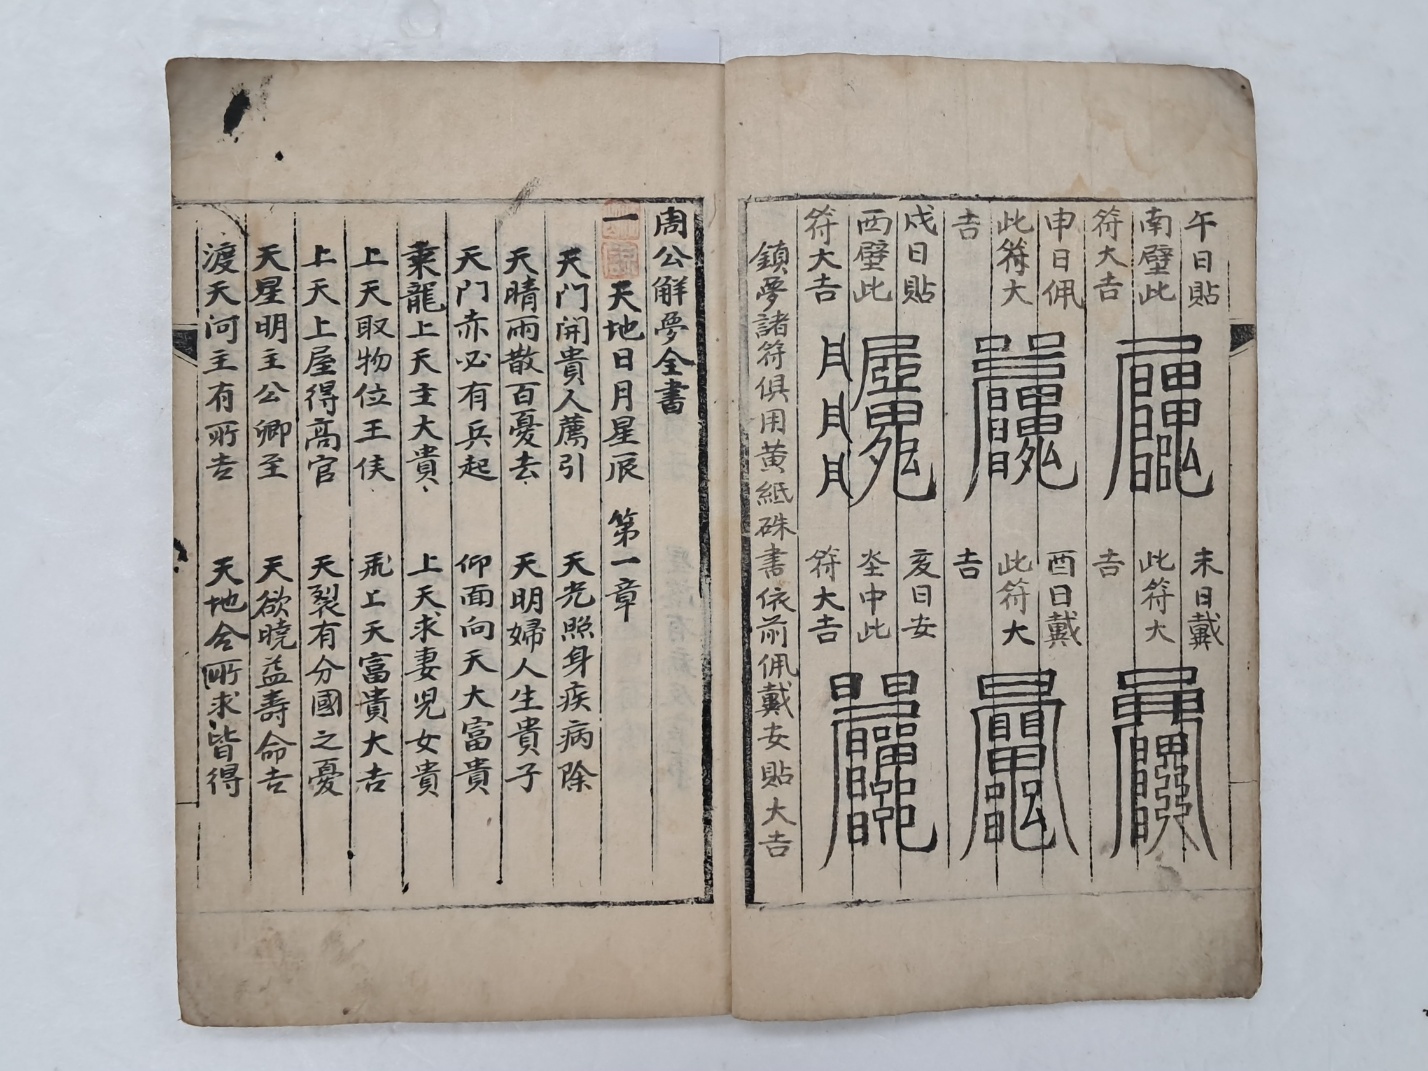 午日貼
南壁此
符大吉
未日戴
此符大
吉
申日佩
此符大
吉
酉日戴
此符大
吉
戌日貼
西壁此
符大吉
亥日安
坐中此
符大吉
鎮夢諸符俱用黄紙硃書依前佩戴安貼大吉
周公解夢全書
一 天地日月星辰 第一章
天門開貴人薦引 天光照身疾病除
天晴雨散百憂去 天明婦人生貴子
天門赤必有兵起 仰面向天大富貴
乗龍上天主大貴 上天求妻兒女貴
上天取物位王侯 飛上天富貴大吉
上天上屋得高官 天裂有分國之憂
天星明主公卿至 天欲曉益壽命吉
渡天河主有所吉 天地合所求皆得